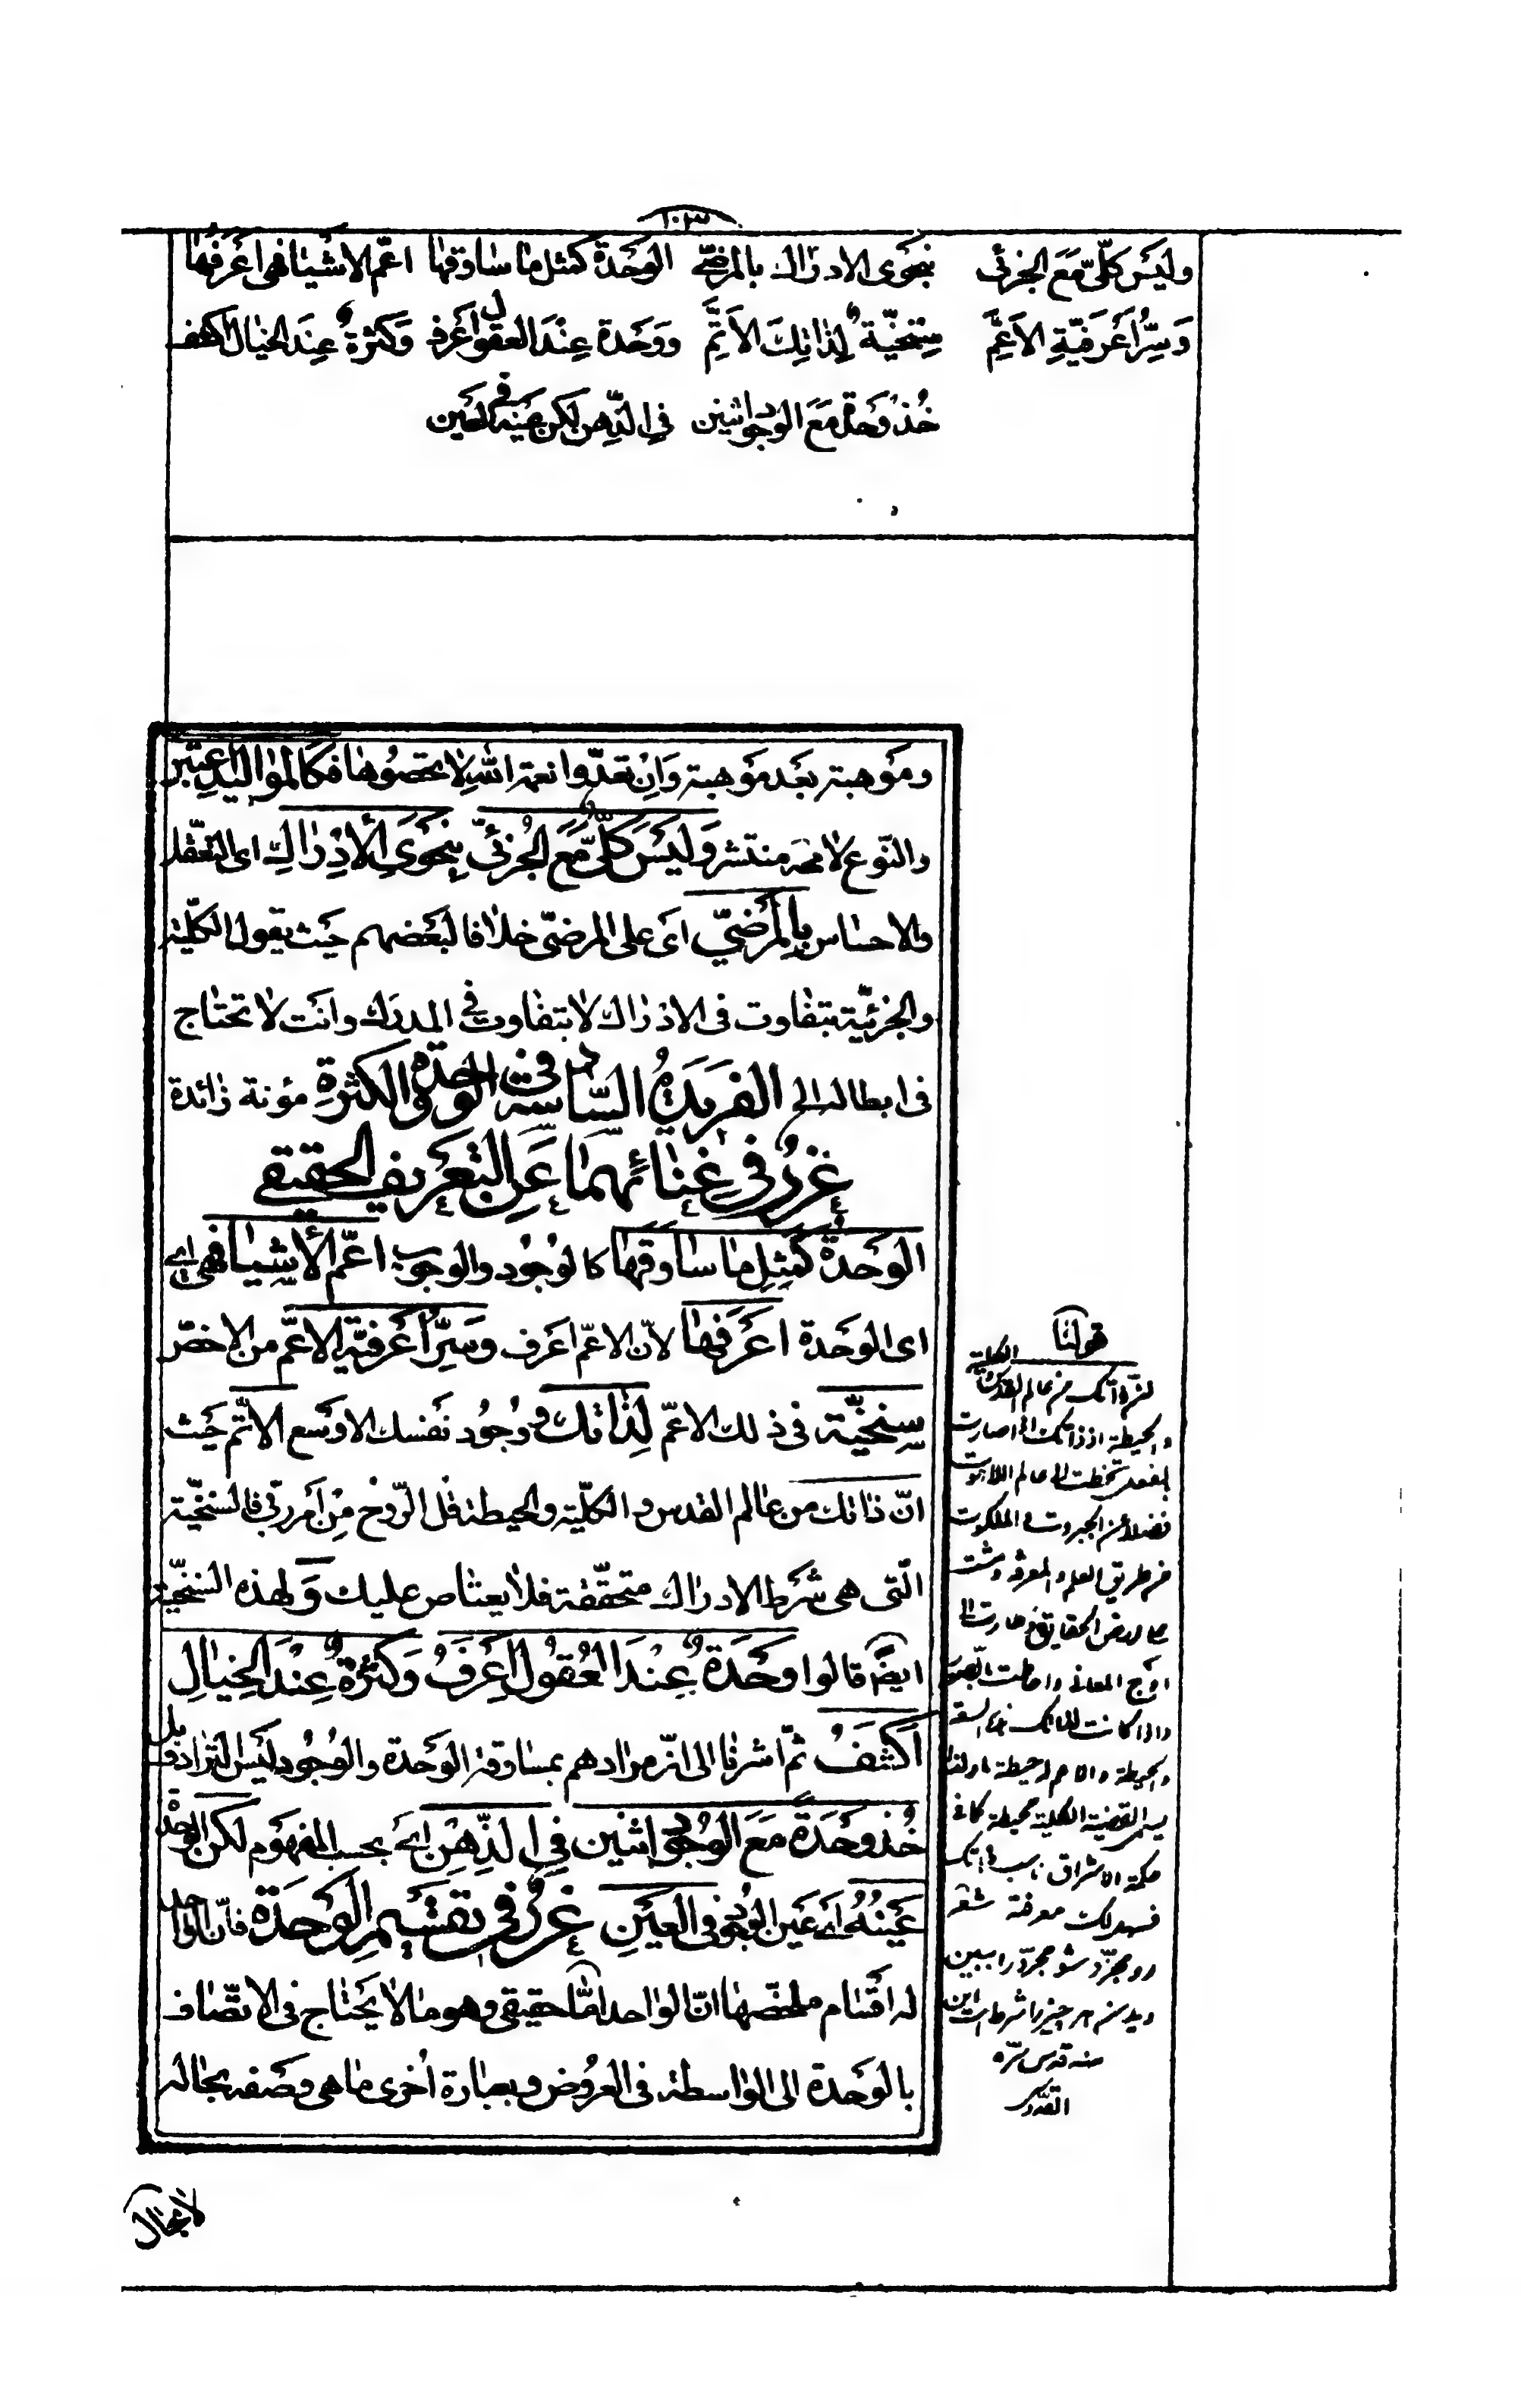 ١٠٣
وليس كلّي مع الجزئي بنحوي الادراك بالمرضيّ الوحدة كمثل ما ساوقها اعمّ الاشيا فهي اعرفها
وسرّ اعرفيّة الاعمّ سنخيّة لذاتك الاتمّ ووحدة عند العقول اعرف وكثرة عند الخيال اكشف
خذ وحدة مع الوجود اثنين في الذّهن لكن عينه في العين
وموهبة بعد موهبة وان تعدّوا نعمة الله لا تحصوها فكالمواليد اعتبر
والنّوع لا منتشر وليس كلّيّ مع الجزئيّ بنحوي الادراك اي التعقّل
والاحساس بالمرضيّ اي على المرضيّ خلافا لبعضهم حيث يقول الكلّية
والجزئيّة بتفاوت في الادراك لا بتفاوت في المدرك وانت لا تحتاج
في ابطاله الى مؤنة زائدة
الفريدة السّادسة في الوحدة والكثرة
غرر في غنائهما عن التعريف الحقيقي
الوحدة كمثل ما ساوقها كالوجود والوجوب اعمّ الأشيا فهي اي
اي الوحدة اعرفها لانّ الاعمّ اعرف وسرّ أعرفيّة الاعمّ من الاخصّ
سنخيّة في ذلك الاعمّ لذاتك ووجود نفسك الاوسع الاتمّ حيث
انّ ذاتك من عالم القدس و الكلّية والحيطة قل الرّوح من أمر ربّي فالسنخيّة
الّتي هي شرط الادراك متحقّقة فلا يعتاص عليك ولهذه السّنخيّة
ايضا قالوا وحدة عند العقول اعرف وكثرة عند الخيال
اكشف ثمّ اشرنا الى انّ مرادهم بمساوقة الوحدة والوجود ليس الترادف بل
خذ وحدة مع الوجود اثنين في الذّهن اي بحسب المفهوم لكن الوحدة
عينه اي عين الوجود في العين غرر في تقسيم الوحدة فانّ الواحد
له اقسام ملخّصها انّ الواحد امّا حقيقي وهو ما لا يحتاج في الاتّصاف
بالوحدة الى الواسطة في العروض وبعبارة اخرى ما هي وصفه بحاله
قولنا
انّ ذاتك من عالم القدس والكلية
والحيطة اذ ذاتك اذا صارت
بالفعل تخطت الى عالم اللاهوت
فضلا عن الجبروت والملكوت
من طريق العلم والمعرفة
اوج المعاني
واذا كانت لذاتك هذه السعة
والحيطة والاعم له حيطة ولذا
يسمى القضية الكلية محيطة كما في
حكمة الاشراق ناسب ذاتك
فسهل لك معرفته شعر
رو مجرّد شو مجرّد را ببين
ديدن هر چيز را شرط است اين
منه قدس سرّه
القدّوسي
لا بحال